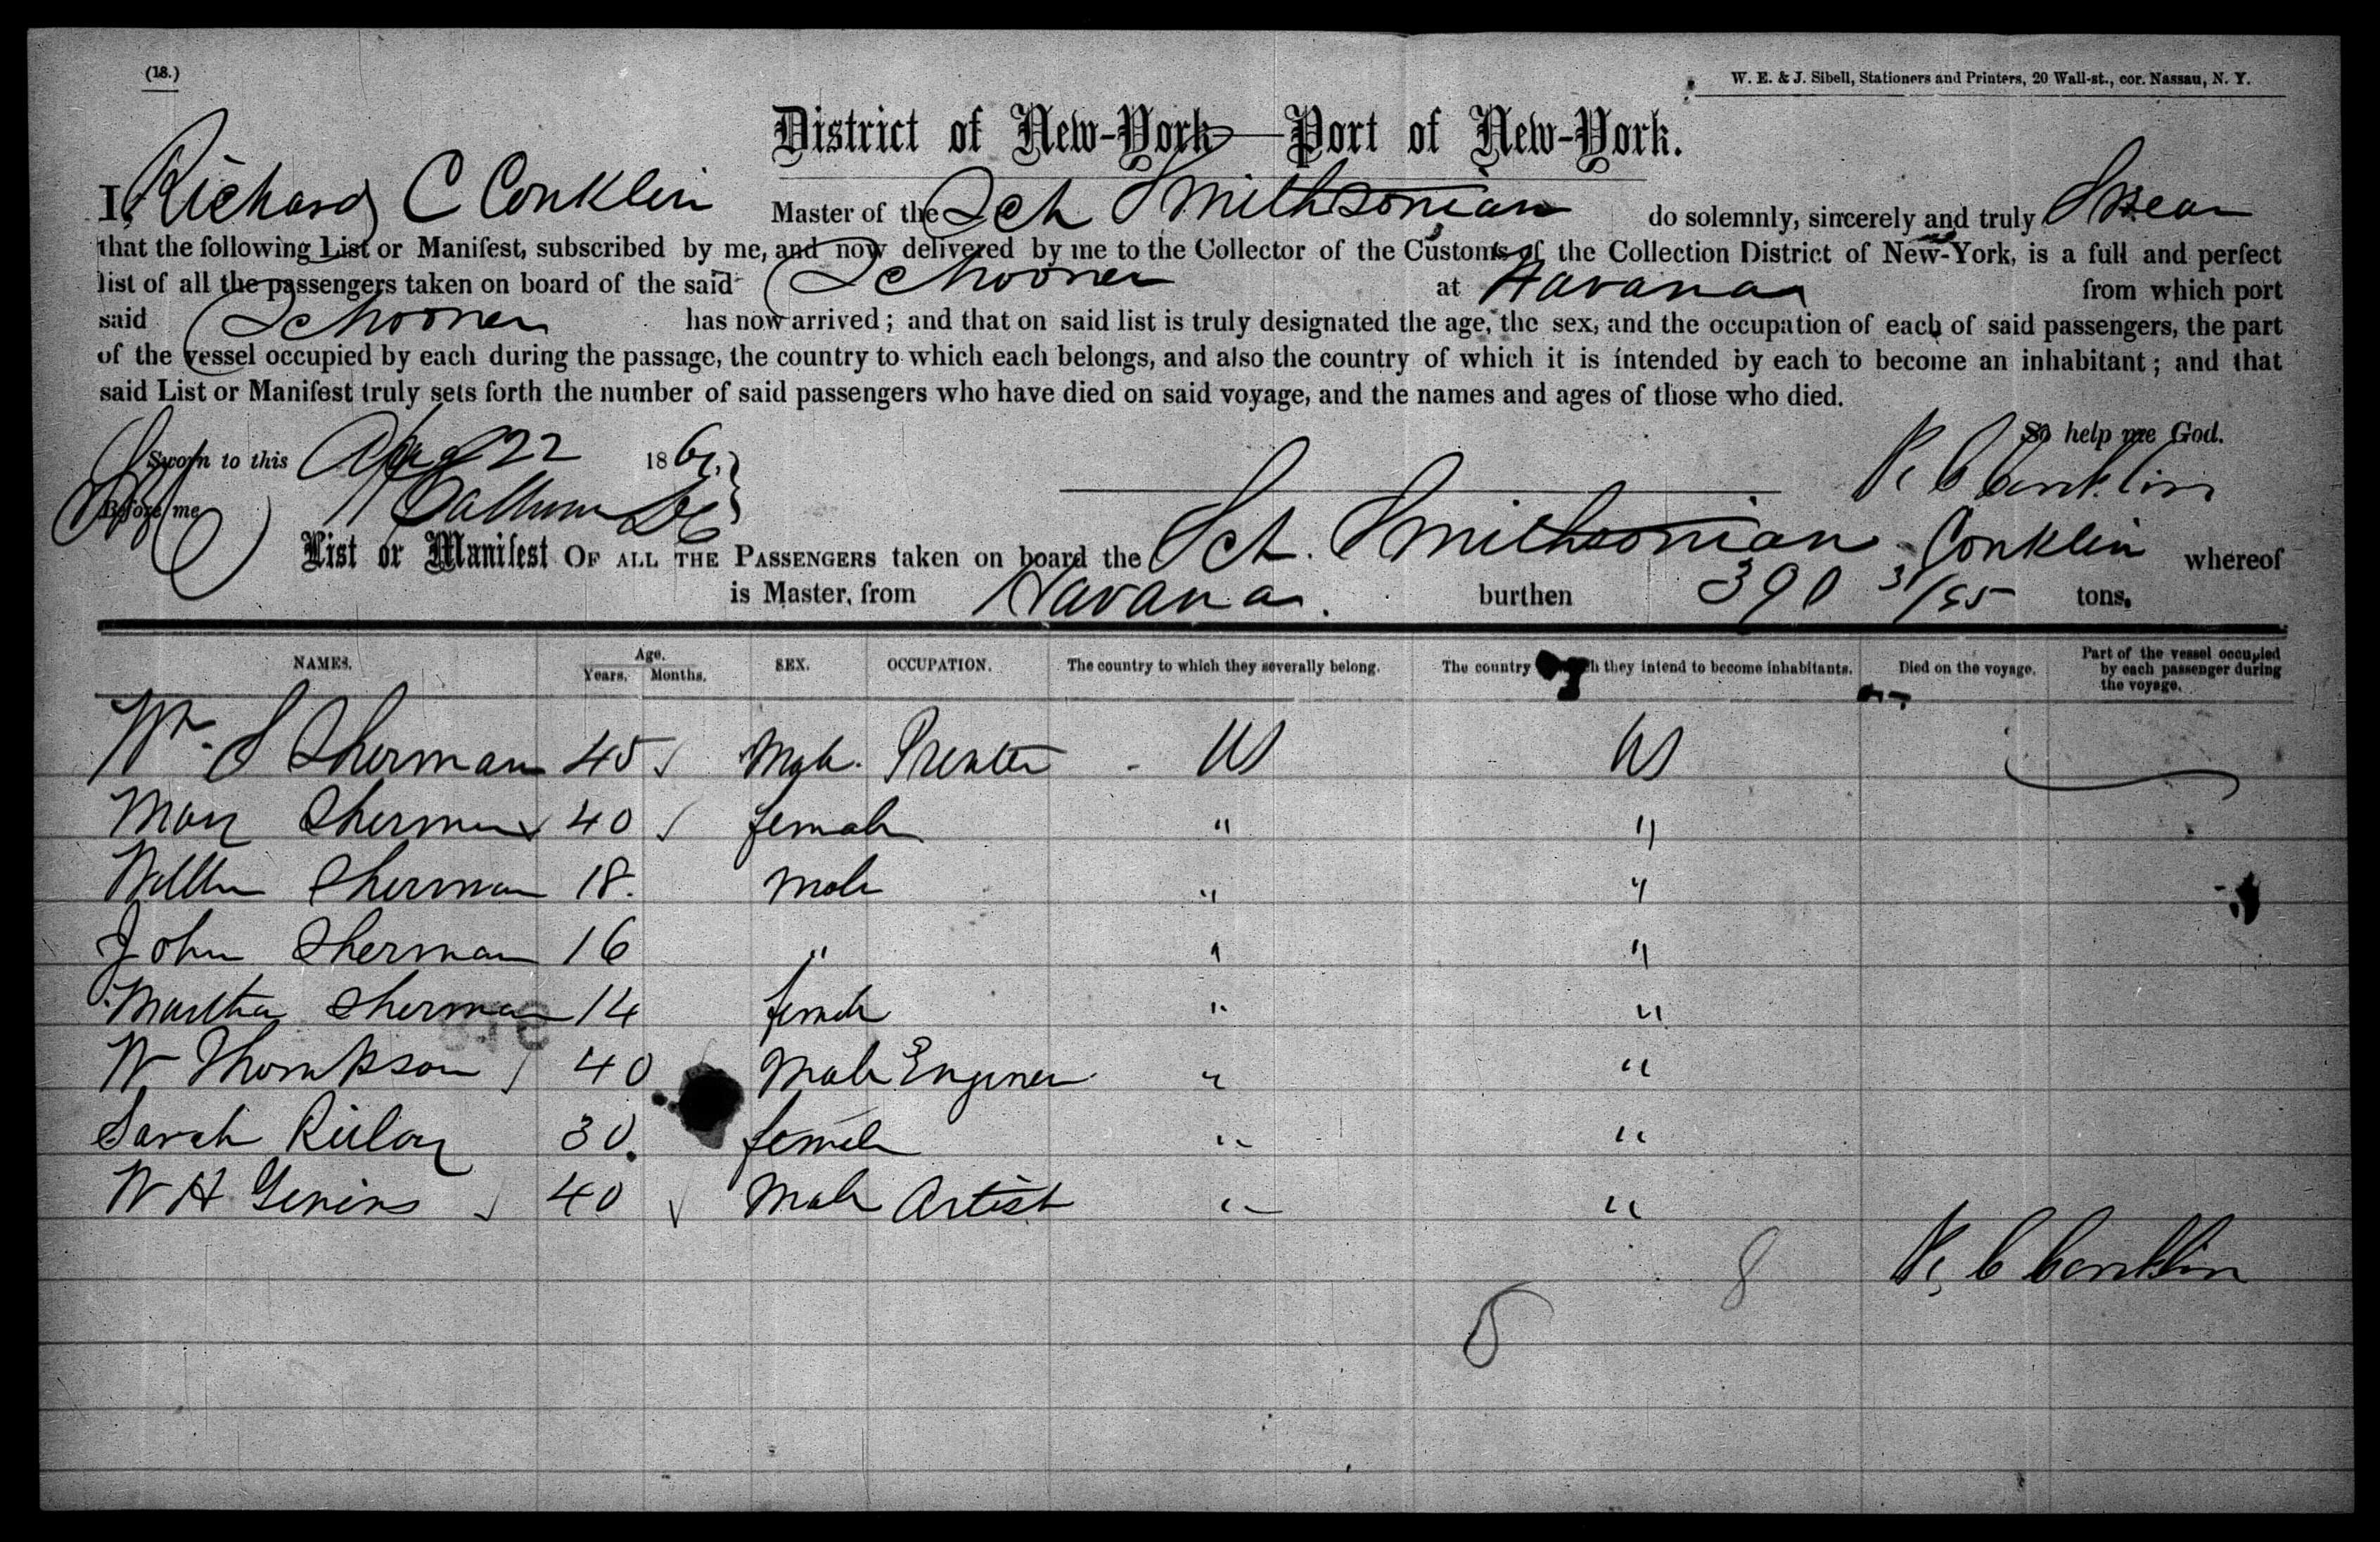 (18.)
W. E. & J. Sibell, Stationers and Printers, 20 Wall-st., cor. Nassau, N. Y.
District of New-York—Port of New-York.
I, Richard C Conklin Master of the Sch Smithsonian do solemnly, sincerely and truly Swear
that the following List or Manifest, subscribed by me, and now delivered by me to the Collector of the Customs of the Collection District of New-York, is a full and perfect
list of all the passengers taken on board of the said Schooner at Havana from which port
said Schooner has now arrived; and that on said list is truly designated the age, the sex, and the occupation of each of said passengers, the part
of the vessel occupied by each during the passage, the country to which each belongs, and also the country of which it is intended by each to become an inhabitant; and that
said List or Manifest truly sets forth the number of said passengers who have died on said voyage, and the names and ages of those who died.
So help me God.
Sworn to this 22 186
R C Conklin
Before me
List or Manifest OF ALL THE PASSENGERS taken on board the Sch. Smithsonian Conklin whereof
is Master, from Havana. burthen 390 31/95 tons.
NAMES. Age. Years. Months. SEX. OCCUPATION. The country to which they severally belong. The country they intend to become inhabitants. Died on the voyage. Part of the vessel occupied by each passenger during the voyage.
Wm. S Sherman 45 Male US US
Mary Sherman 40 female " "
Sherman 18. Male " "
John Sherman 16 " " "
Martha Sherman 14 female " "
W Thompson 40 Male Engineer " "
Sarah 30. female " "
W H 40 Male Artist " "
8
R, C Conklin